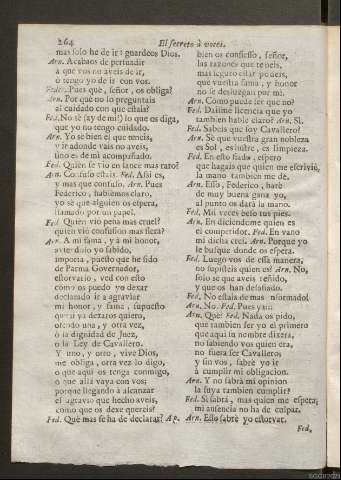 264
El secreto à voces.
mas solo he de ir: guardeos Dios.
Arn. Acabaos de persuadir
a que vos no aveis de ir,
ò tengo yo de ir con vos.
Feder. Pues què, señor, os obliga?
Arn. Por què no lo preguntais
al cuidado con que estais?
Fed. No sè (ay de mi!) lo que os diga,
que yo no tengo cuidado.
Arn. Yo sè bien el que teneis,
y ir adonde vais no aveis,
sino es de mi acompañado.
Fed. Quien se viò en lance mas raro?
Arn. Confuso estais. Fed. Assi es,
y mas que confuso. Arn. Pues
Federico, hablèmos claro,
yo sè que alguien os espera,
llamado por un papel.
Fed. Quien viò pena mas cruel?
quien viò confusion mas fiera?
Arn. A mi fama, y à mi honor,
aviendolo yo sabido,
importa, puesto que he sido
de Parma Governador,
estorvarlo, ved con esto
como os puedo yo dexar
declarado ir à agraviar
mi honor, y fama, supuesto
que si yà dexaros quiero,
ofendo una, y otra vez,
ò la dignidad de Juez,
ò la Ley de Cavallero.
Y uno, y otro, vive Dios,
me obliga, otra vez lo digo,
o que aqui os tenga conmigo,
o que allà vaya con vos;
porque llegando à alcanzar
el agravio que hecho aveis,
como que os dexe quereis?
Fed. Què mas se ha de declarar? Ap.
bien os confiesso, señor,
las razones que teneis,
mas seguro estar podeis,
que vuestra fama, y honor
no se desluzgan por mi.
Arn. Como puede ser que no?
Fed. Daisme licencia que yo
tambien hable claro? Arn. Si.
Fed. Sabeis que soy Cavallero?
Arn. Sè que vuestra gran nobleza
es Sol, es lustre, es limpieza.
Fed. En esso fiado, espero
que hagais que quien me escriviò,
la mano tambien me dè.
Arn. Esso, Federico, harè
de muy buena gana yo,
al punto os darà la mano.
Fed. Mil veces beso tus pies.
Arn. En diciendome quien es
el competidor. Fed. En vano
mi dicha crei. Arn. Porque yo
le busque donde os espera.
Fed. Luego vos de essa manera,
no supisteis quien es? Arn. No,
solo sè que aveis reñido,
y que os han desafiado.
Fed. No estais de mas informado?
Arn. No. Fed. Pues yà...
Arn. Què? Fed. Nada os pido,
que tambien fer yo el primero
que aqui su nombre dixera,
no sabiendo vos quien era,
no fuera ser Cavallero;
y sin vos, sabrè yo ir
à cumplir mi obligacion.
Arn. Y no sabrà mi opinion
la suya tambien cumplir?
Fed. Si sabrà, mas quien me espera,
mi ausencia no ha de culpar.
Arn. Esso sabrè yo estorvar.
Fed,